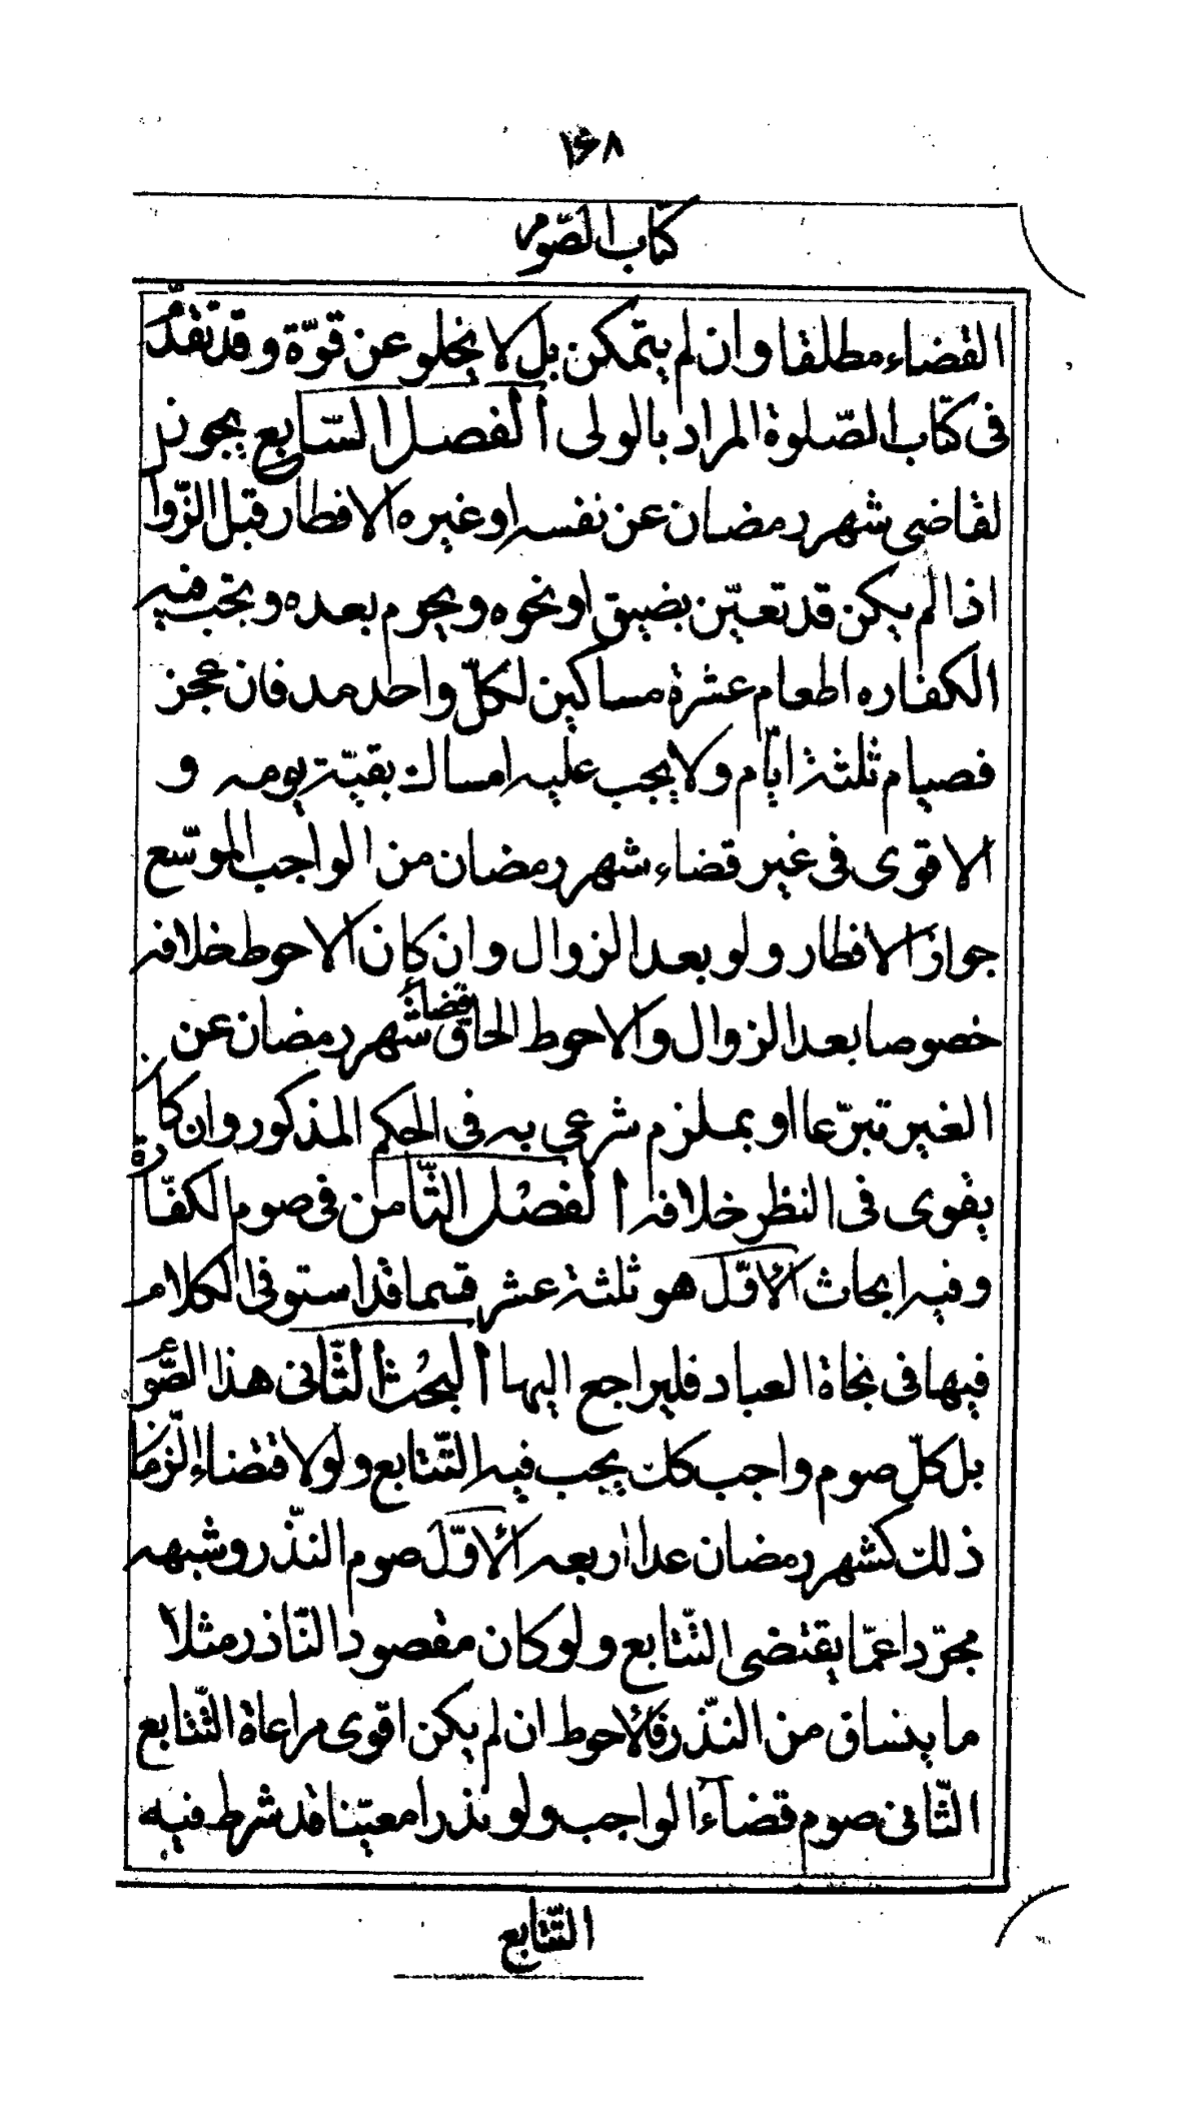 ۱۶۸
كتاب الصّوم
القضاء مطلقا وان لم يتمكن بل لا يخلو عن قوّة وقد تقدّم
فى كتاب الصّلوة المراد بالولى الفصل السّابع يجوز
لقاضى شهر رمضان عن نفسه او غيره الافطار قبل الزّوال
اذا لم يكن قد تعيّن بضيق او نحوه ويحرم بعده وتجب فيه
الكفاره اطعام عشرة مساكين لكلّ واحد مد فان عجز
فصيام ثلثة ايّام ولا يجب عليه امساك بقيّة يومه و
الاقوى فى غير قضاء شهر رمضان من الواجب الموسّع
جواز الافطار ولو بعد الزوال وان كان الاحوط خلافه
خصوصا بعد الزوال والاحوط الحاق قضاء شهر رمضان عن
الغير تبرّعا او بملزم شرعى به فى الحكم المذكور وان كان
يقوى فى النظر خلافه الفصل الثّامن فى صوم الكفّارة
وفيه ابحاث الاوّل هو ثلثة عشر قسما قد استوفى الكلام
فيها فى نجاة العباد فليراجع اليها البحث الثّانى هذا الصّوم
بل كلّ صوم واجب كك يجب فيه التّتابع ولو لاقتضاء الزّمان
ذلك كشهر رمضان عدا اربعه الاوّل صوم النذّر وشبهه
مجرّدا عمّا يقتضى التّتابع ولو كان مقصود النّاذر مثلا
ما ينساق من النذّر فالاحوط ان لم يكن اقوى مراعاة التّتابع
الثّانى صوم قضاء الواجب ولو نذرا معيّنا قد شرط فيه
التّتابع